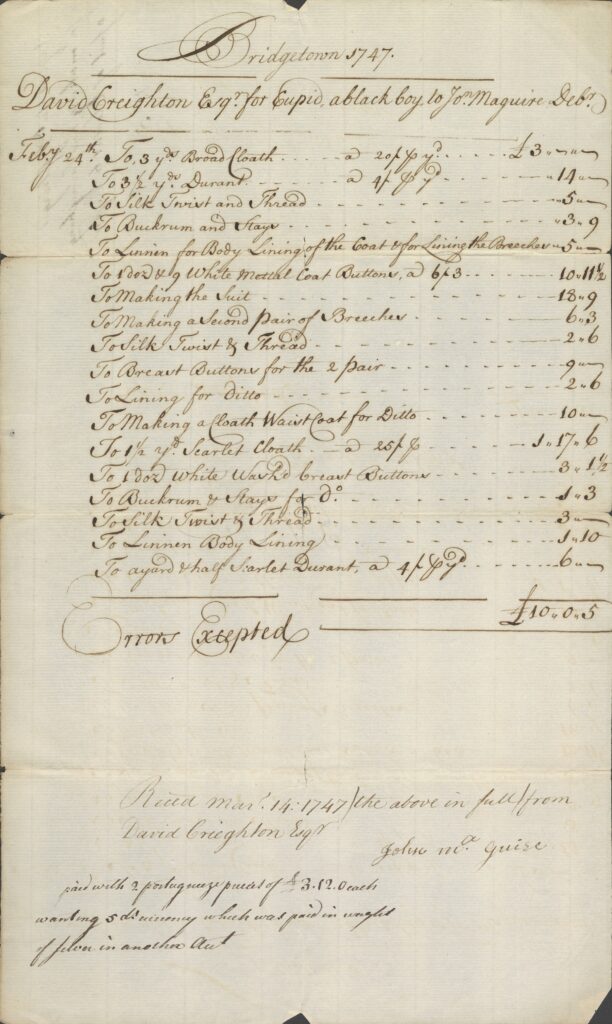 Bridgetown 1747.
David Creighton Esqr. for Cupid, a black boy, to Jon. Maguire Debr.
Feby 24th. To 3 yds Broad Cloath - - - a 20/ ⅌ yd. - - - £3 " — " —
To 3½ yds. Durant - - - a 4/ ⅌ yd - - - 14 " —
To Silk Twist and Thread - - - 5 " —
To Buckrum and Stays - - - 3 " 9
To Linnen for Body Lining of the Coat & for Lining the Breeches " 5 " —
To 1 doz & 9 White Mettal Coat Buttons, a 6/3 - - - 10 " 11½
To Making the Suit - - - 18 " 9
To Making a Second Pair of Breeches - - - 6 " 3
To Silk Twist & Thread - - - 2 " 6
To Breast Buttons for the 2 pair - - - 9 " —
To Lining for Ditto - - - 2 " 6
To Making a Cloath Waist Coat for Ditto - - - 10 " —
To 1½ yd. Scarlet Cloath - a 25/ ⅌ - - - 1 " 17 " 6
To 1 doz White Wash'd breast Buttons - - - 3 " 1½
To Buckrum & Stays for Do. - - - 1 " 3
To Silk Twist & Thread - - - 3 " —
To Linnen Body Lining - - - 1 " 10
To a yard & half Scarlet Durant, a 4/ ⅌ yd - - - 6 " —
£10 " 0 " 5
Errors Excepted
Recd Mar. 14: 1747/ the above in full/ from
David Crieghton Esqr
John Mc. Guire
paid with 2 portugueze pieces of £3.12.0 each
wanting 5 ds. currency which was paid in weight
of silver in another Act